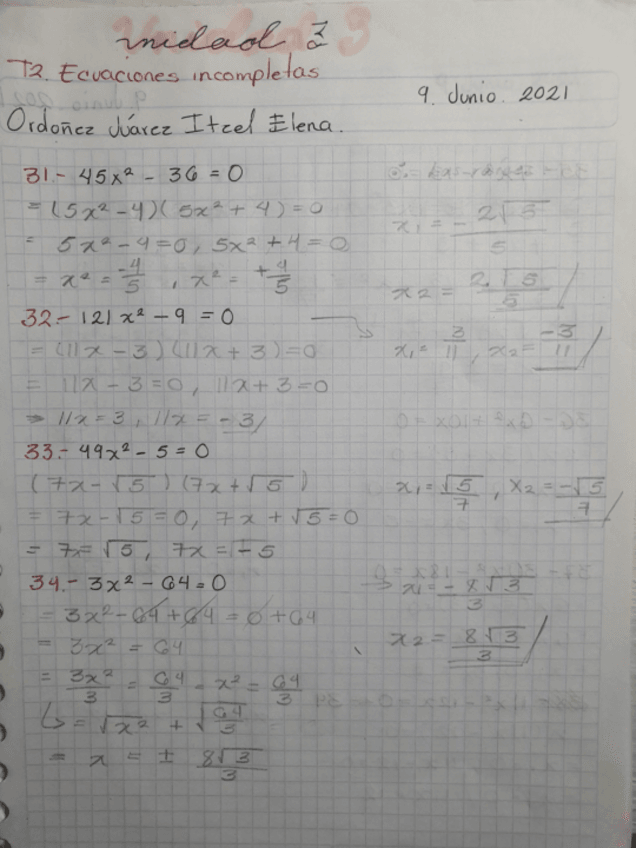 Unidad 3
T2. Ecuaciones incompletas
9. Junio. 2021
Ordoñez Juárez Itzel Elena.
31.- 45x² - 36 = 0
= (5x² - 4)( 5x² + 4) = 0
= 5x² - 4 = 0, 5x² + 4 = 0
= x² = -4/5 , x² = +4/5
x₁ = - 2√5/5
x₂ = 2√5/5
32.- 121x² - 9 = 0
= (11x - 3)(11x + 3) = 0
= 11x - 3 = 0, 11x + 3 = 0
⇒ 11x = 3, 11x = -3
x₁ = 3/11 , x₂ = -3/11
33.- 49x² - 5 = 0
(7x - √5)(7x + √5)
= 7x - √5 = 0, 7x + √5 = 0
= 7x = √5, 7x = √-5
x₁ = √5/7 , x₂ = -√5/7
34.- 3x² - 64 = 0
= 3x² - 64 + 64 = 0 + 64
= 3x² = 64
= 3x²/3 = 64/3 = x² = 64/3
↳ = √x² + √64/3
= x = ± 8√3/3
→ x₁ = - 8√3/3
x₂ = 8√3/3